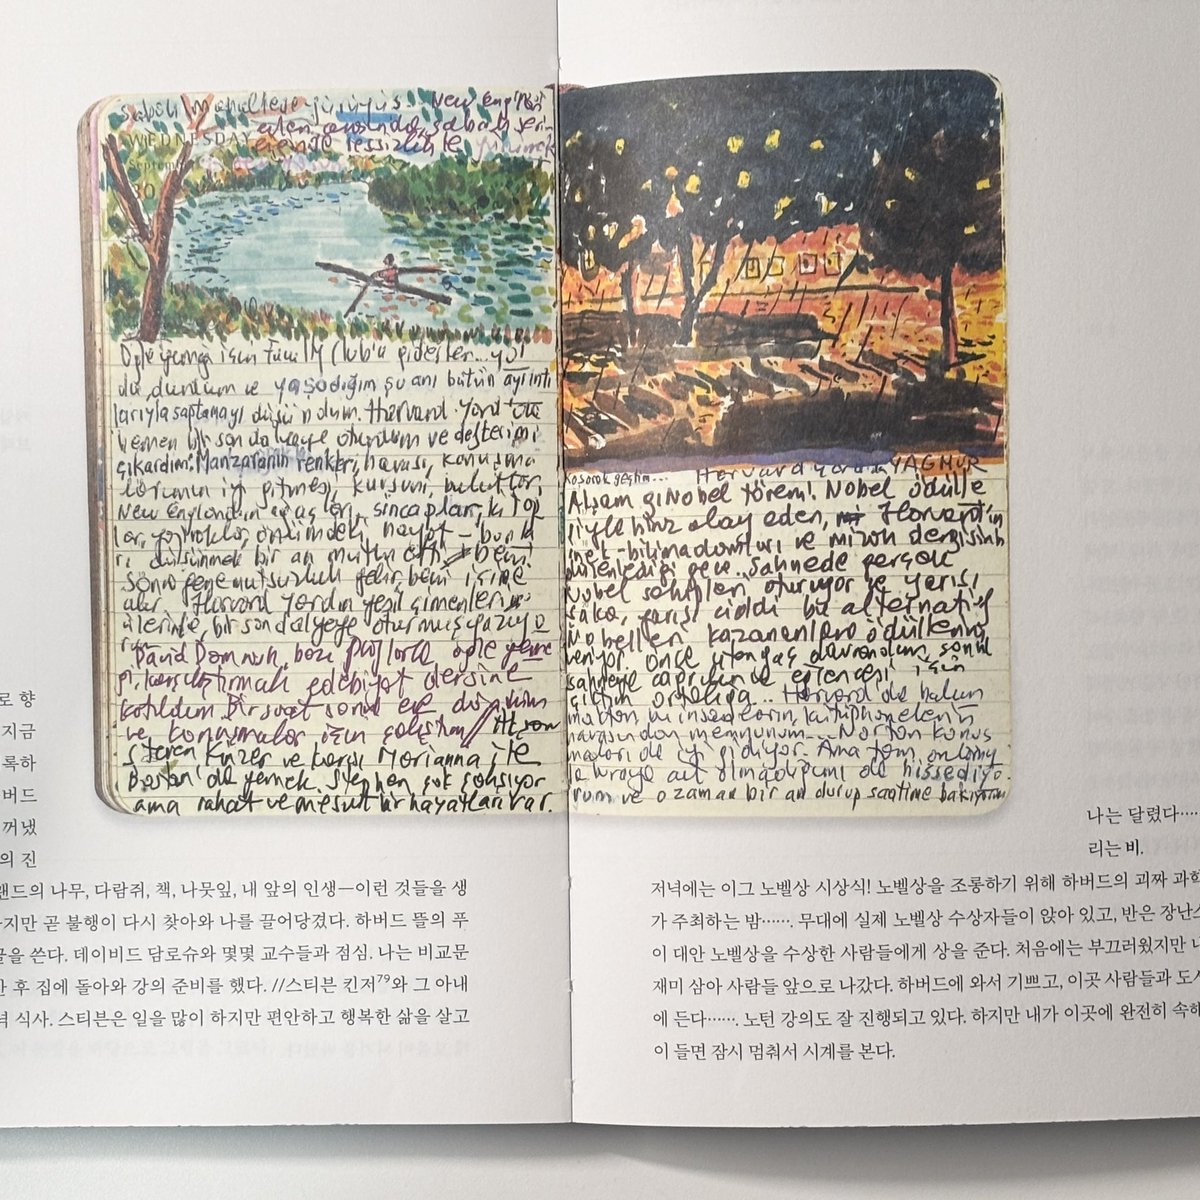 WEDNESDAY
September
30
Öğle yemeği için Faculty Club'a giderler... yol
da durdum ve yaşadığım şu anı bütün ayrıntı
larıyla saptamayı düşündüm. Harvard Yard
hemen bir sandalyeye oturdum ve defterimi
çıkardım. Manzaranın renkleri, havası, konuşma
larımın iyi gitmesi, kurşuni bulutlar,
New England'ın ağaçları, sincaplar, kitap
lar, yapraklar, önümdeki hayat - bunla
rı düşünmek bir an mutlu etti beni
sonra gene mutsuzluk gelir, beni içine
alır. Harvard Yard'ın yeşil çimenleri
üzerinde, bir sandalyeye oturmuş yazıyo
rum.
David Damrosh, bazı proflarla öğle yeme
ği. karşılaştırmalı edebiyat dersine
katıldım. Bir saat sonra eve döndüm
ve konuşmalar için çalıştım // Akşam
Steven Kinzer ve karısı Marianna ile
Boston'da yemek. Stephen çok çalışıyor
ama rahat ve mesut bir hayatları var.
koşarak geçtim... Harvard Yard'da YAĞMUR
Akşam IgNobel töreni! Nobel ödülle
riyle alay eden, Harvard'ın
bilimadamları ve mizah dergisinin
düzenlediği gece.. Sahnede gerçek
Nobel sahipleri oturuyor ve yarısı
şaka, yarısı ciddi bu alternatif
Nobelleri kazananlara ödüllerini
veriyor. Önce utangaç davrandım, sonra
sahneye eğlencesi için
çıktım ortalığa... Harvard'da bulun
maktan ve insanların, kütüphanelerin
havasından memnunum... Norton konuş
maları da iyi gidiyor. Ama tam
buraya ait olmadığımı da hissediyo
rum ve o zaman bir an durup saatime bakıyorum
로 향
지금
록하
버드
꺼냈
의 진
랜드의 나무, 다람쥐, 책, 나뭇잎, 내 앞의 인생—이런 것들을 생
지만 곧 불행이 다시 찾아와 나를 끌어당겼다. 하버드 뜰의 푸
글을 쓴다. 데이비드 담로슈와 몇몇 교수들과 점심. 나는 비교문
한 후 집에 돌아와 강의 준비를 했다. //스티븐 킨저79와 그 아내
녁 식사. 스티븐은 일을 많이 하지만 편안하고 행복한 삶을 살고
나는 달렸다……
리는 비.
저녁에는 이그 노벨상 시상식! 노벨상을 조롱하기 위해 하버드의 괴짜 과학
가 주최하는 밤……. 무대에 실제 노벨상 수상자들이 앉아 있고, 반은 장난스
이 대안 노벨상을 수상한 사람들에게 상을 준다. 처음에는 부끄러웠지만 나
재미 삼아 사람들 앞으로 나갔다. 하버드에 와서 기쁘고, 이곳 사람들과 도시
에 든다……. 노턴 강의도 잘 진행되고 있다. 하지만 내가 이곳에 완전히 속해
이 들면 잠시 멈춰서 시계를 본다.